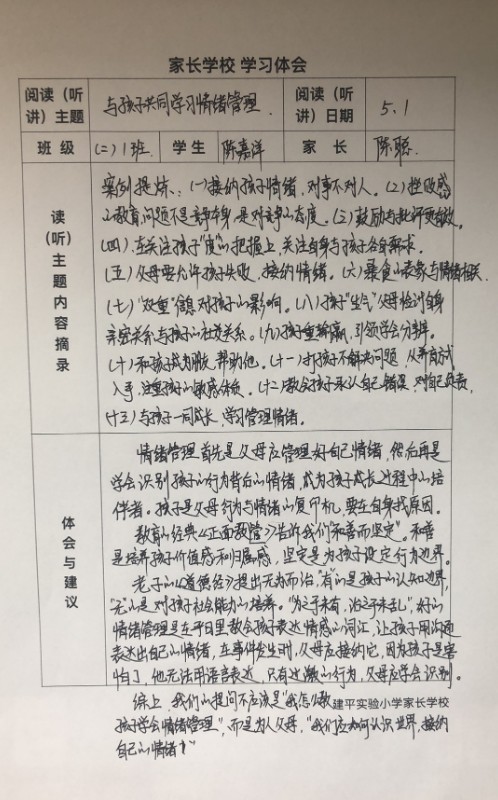 家长学校 学习体会
阅读（听讲）主题 与孩子共同学习情绪管理. 阅读（听讲）日期 5.1
班 级 (二)1班. 学 生 陈嘉洋 家 长 陈聪.
读（听）主题内容摘录
案例提炼：(一)接纳孩子情绪，对事不对人。(二)挫败感
的教育问题不是竞争本身，是对竞争的态度。(三)鼓励与批评要
(四)在关注孩子"度"的把握上，关注自身与孩子各自需求。
(五)父母要允许孩子失败，接纳情绪。(六)暴食的素教与情绪相关.
(七)"双重"信息对孩子的影响。(八)孩子"生气"父母检讨自身
亲密关系与孩子的社交关系。(九)孩子重输赢，引领学会分辨。
(十)和孩子成为朋友，帮助他。(十一)打孩子不解决问题，从养育方式
入手，注重孩子的敏感体质。(十二)教会孩子承认自己错误，对自己负责，
(十三)与孩子一同成长，学习管理情绪。
体会与建议
情绪管理首先是父母应管理好自己情绪，然后再是
学会识别孩子的行为背后的情绪，成为孩子成长过程中的培
伴者。孩子是父母行为与情绪的复印机，要在自身找原因。
教育的经典《正面教管》告诉我们"和善而坚定"。和善
是培养孩子价值感和归属感，坚定是为孩子设定行为边界。
老子的《道德经》提出无为而治，"有"的是孩子的认知边界，
"无"的是对孩子社会能力的培养。"为之于未有，治之于未乱"，好的
情绪管理是在平日里教会孩子表达情感的词汇，让孩子用沟通
表达出自己的情绪，在事件发生时，父母应接纳它，因为孩子是害
怕了，他无法用语言表达，只有过激的行为，父母应学会识别。
综上，我们的提问不应该是"我怎么教
建平实验小学家长学校
孩子学会情绪管理"，而是为人父母，"我们应如何认识世界，接纳
自己的情绪？"